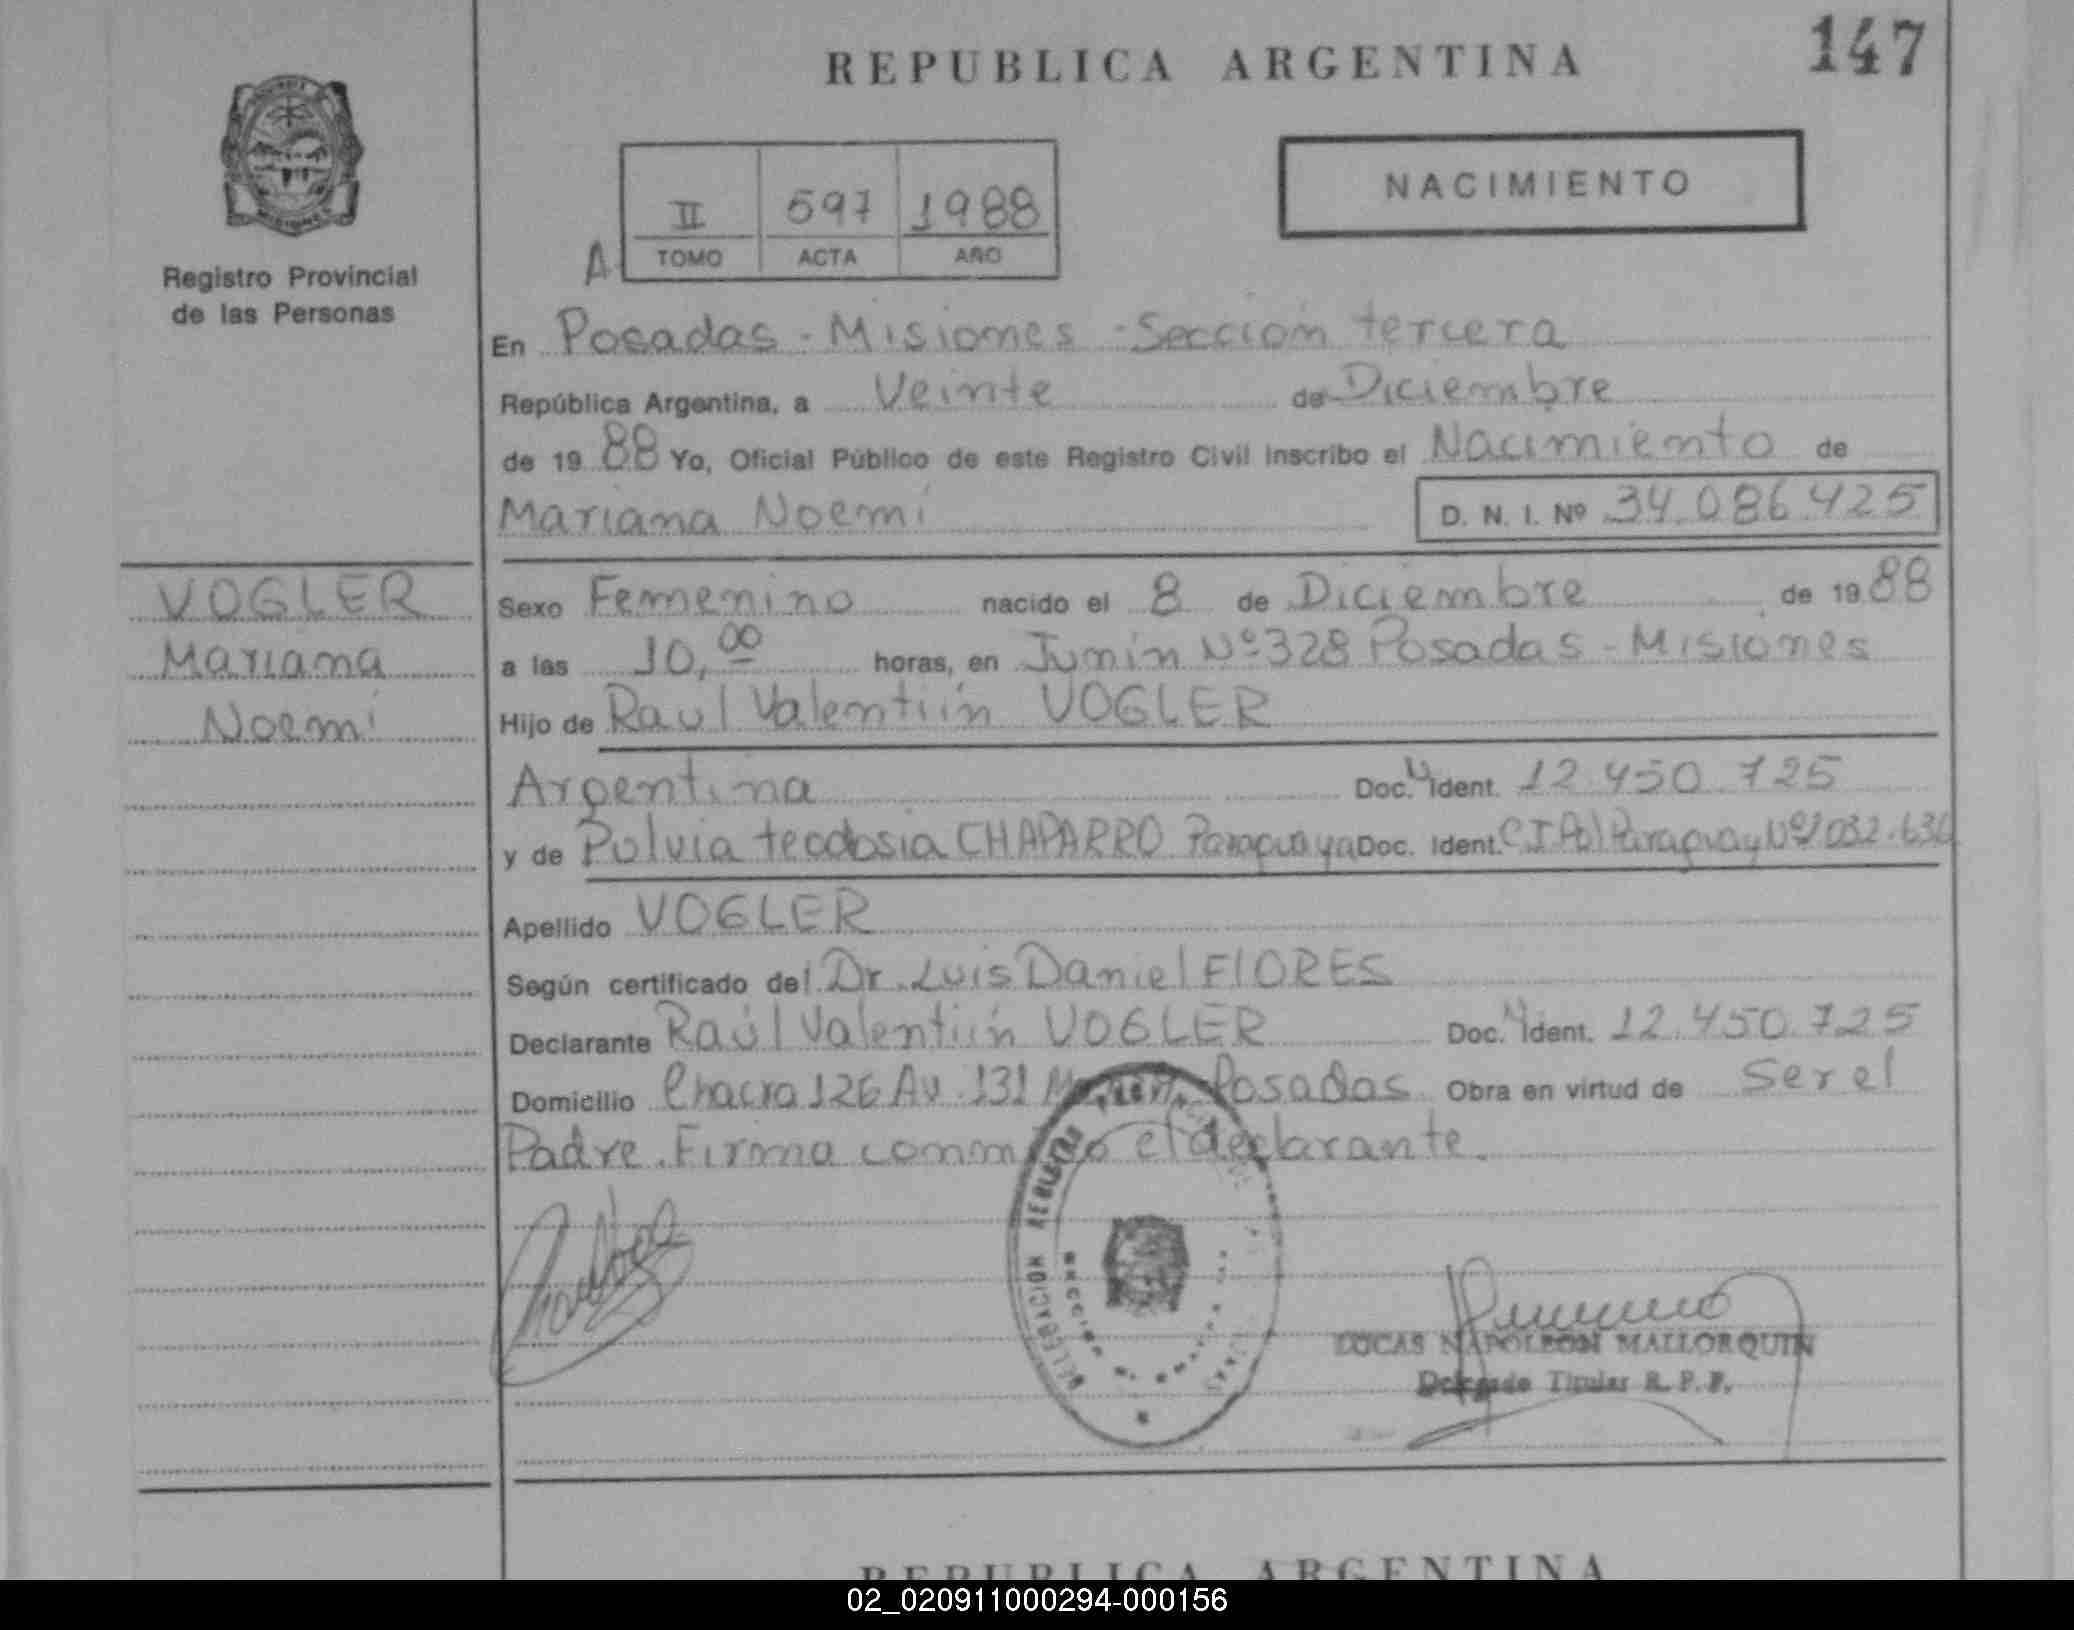 REPUBLICA ARGENTINA
147
Registro Provincial
de las Personas
II 597 1988
A TOMO ACTA AÑO
NACIMIENTO
En Posadas - Misiones - Sección tercera
República Argentina, a Veinte de Diciembre
de 19 88 Yo, Oficial Público de este Registro Civil inscribo el Nacimiento de
Mariana Noemí
D. N. I. Nº 34.086.425
VOGLER
Mariana
Noemí
Sexo Femenino nacido el 8 de Diciembre de 19 88
a las 10,00 horas, en Junín Nº 328 Posadas - Misiones
Hijo de Raúl Valentiín VOGLER
Argentina Doc. Ident. 12.450.725
y de Pulvia teodosia CHAPARRO Paraguaya Doc. Ident. C.I. Pol Paraguay Nº 1032.636
Apellido VOGLER
Según certificado del Dr. Luis Daniel FlORES
Declarante Raúl Valentiín VOGLER Doc. Ident. 12.450.725
Domicilio Chacra 126 Av. 131 Posadas Obra en virtud de Ser el
Padre. Firma el declarante.
DELEGACION
LUCAS NAPOLEON MALLORQUIN
Delegado Titular R. P. P.
REPUBLICA ARGENTINA
02_020911000294-000156